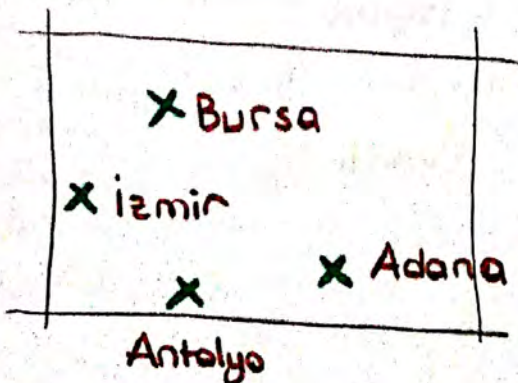 Bursa
izmir
Adana
Antalya